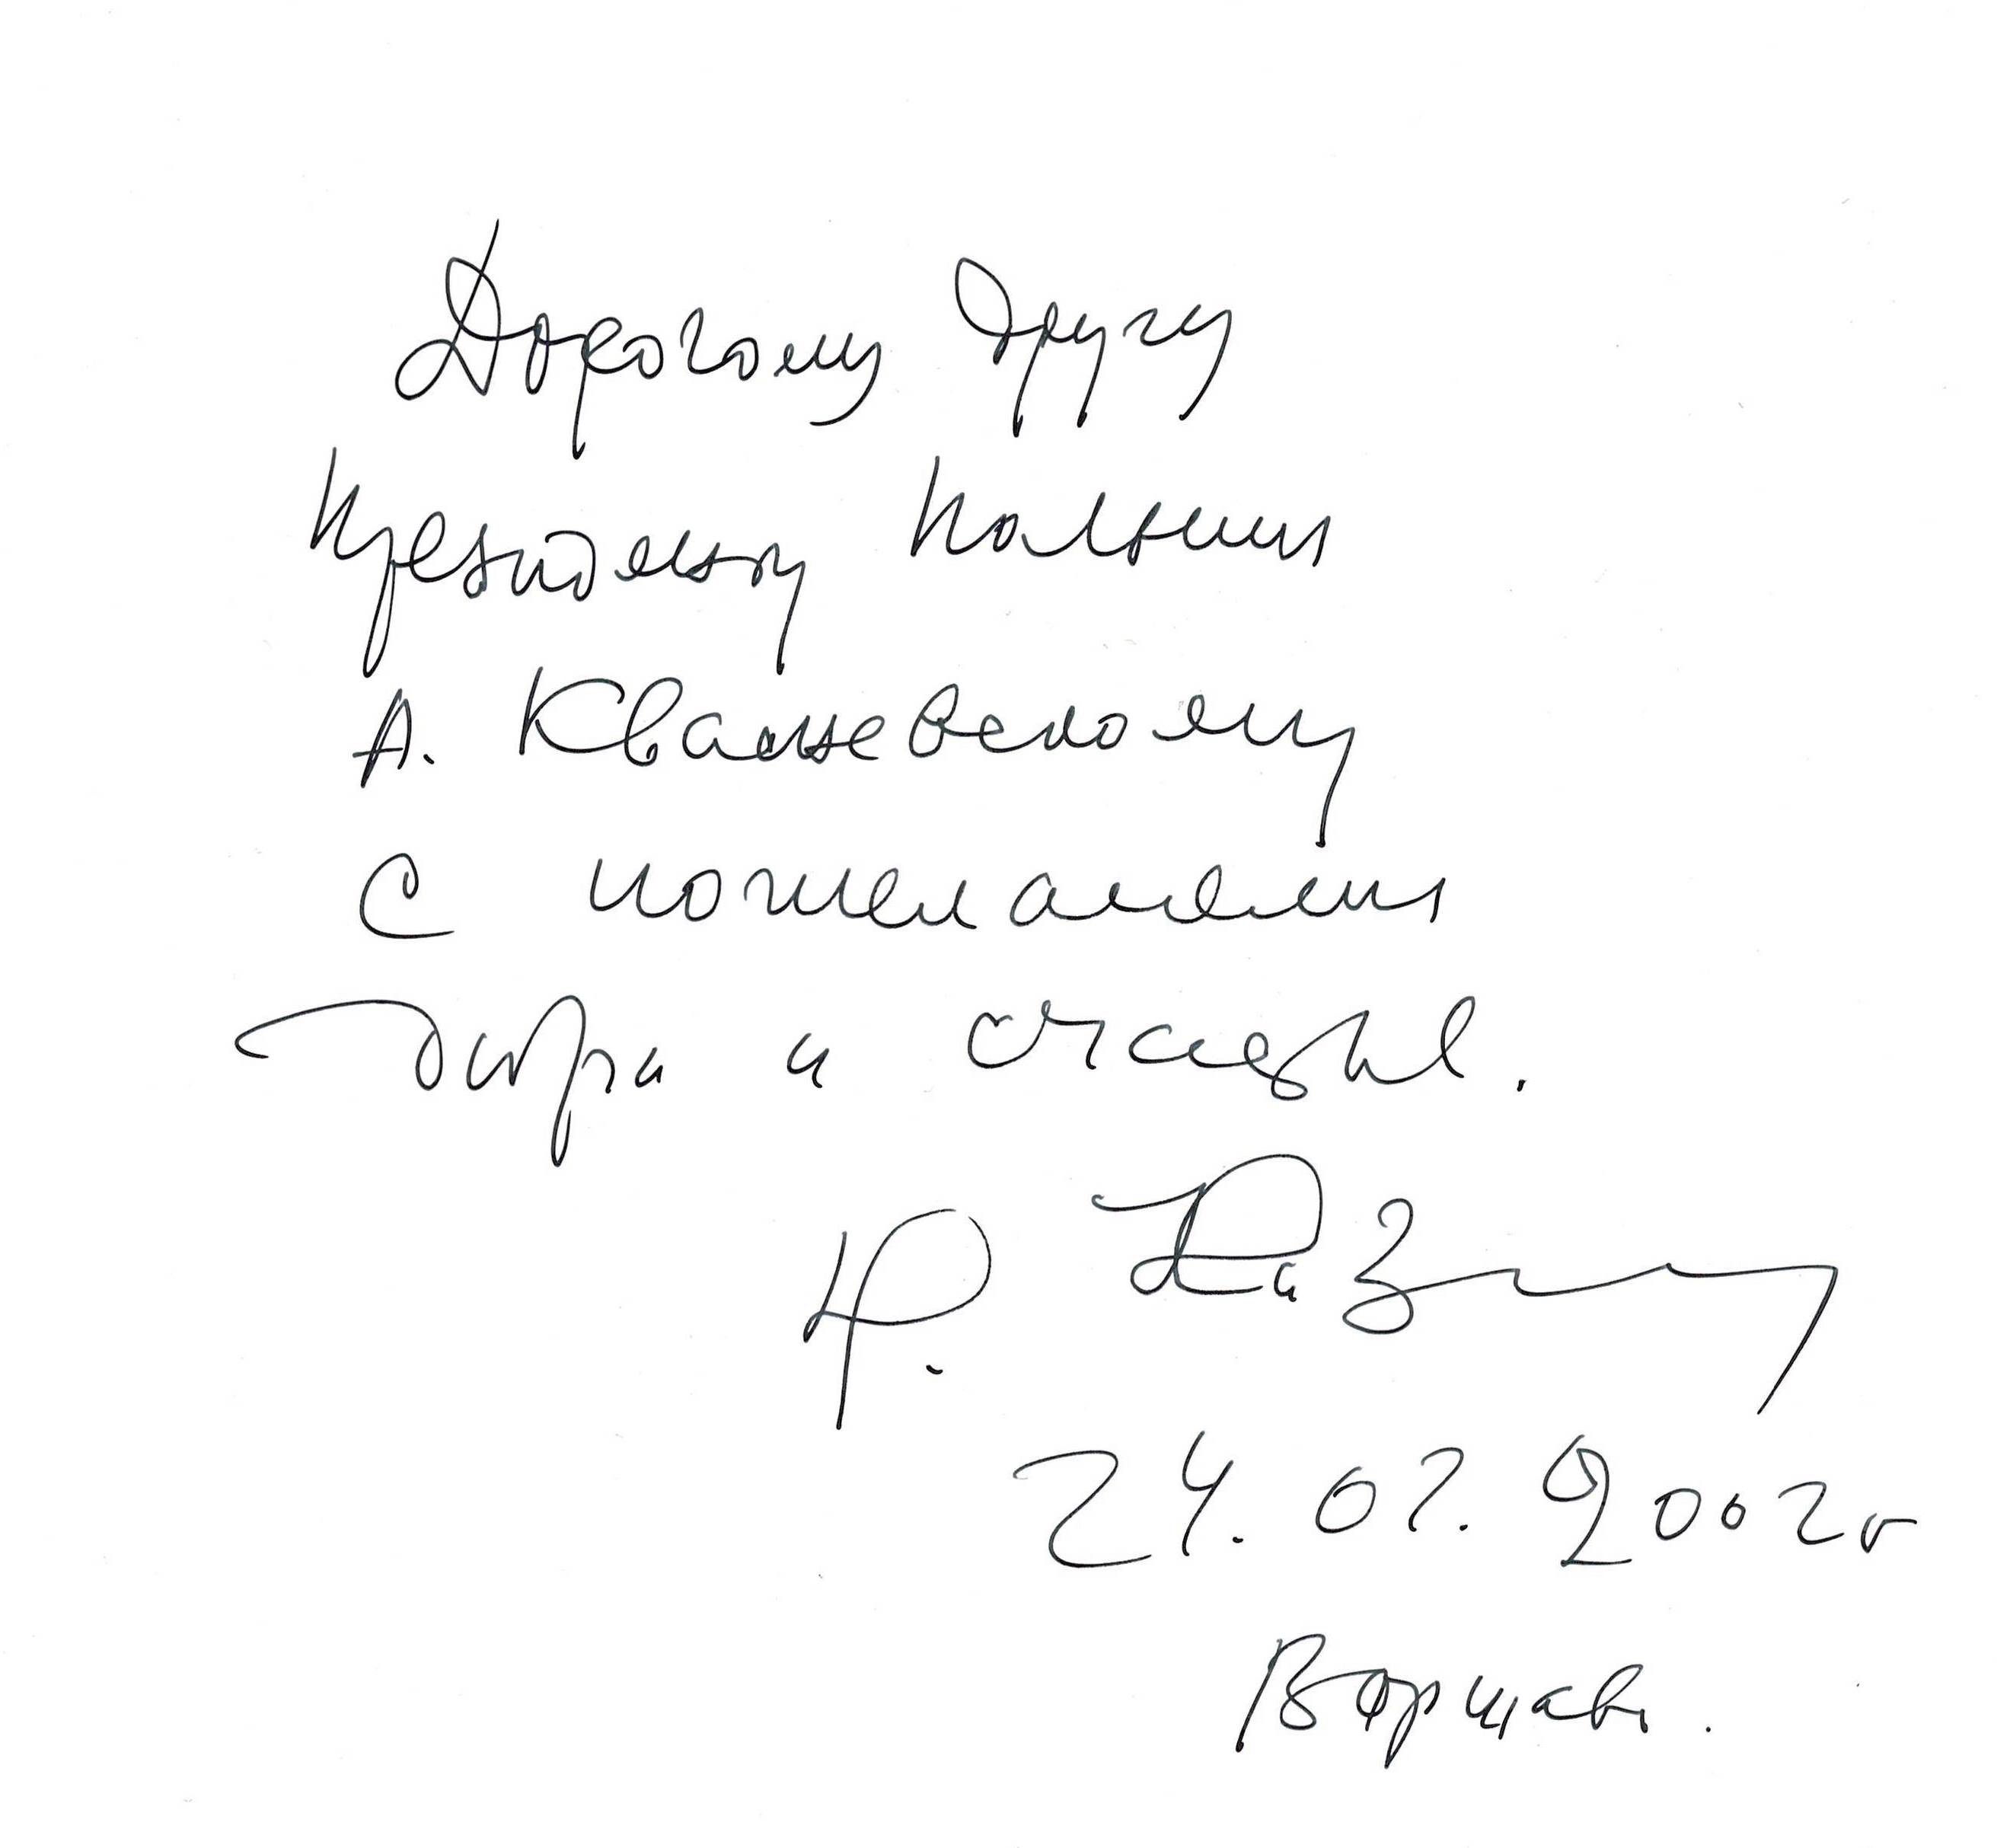 Дорогому другу
Президенту Польши
А. Квасневскому
С пожеланием
добра и счастье.
Н. Назарбаев
24. 02. 2002 г
Варшава.